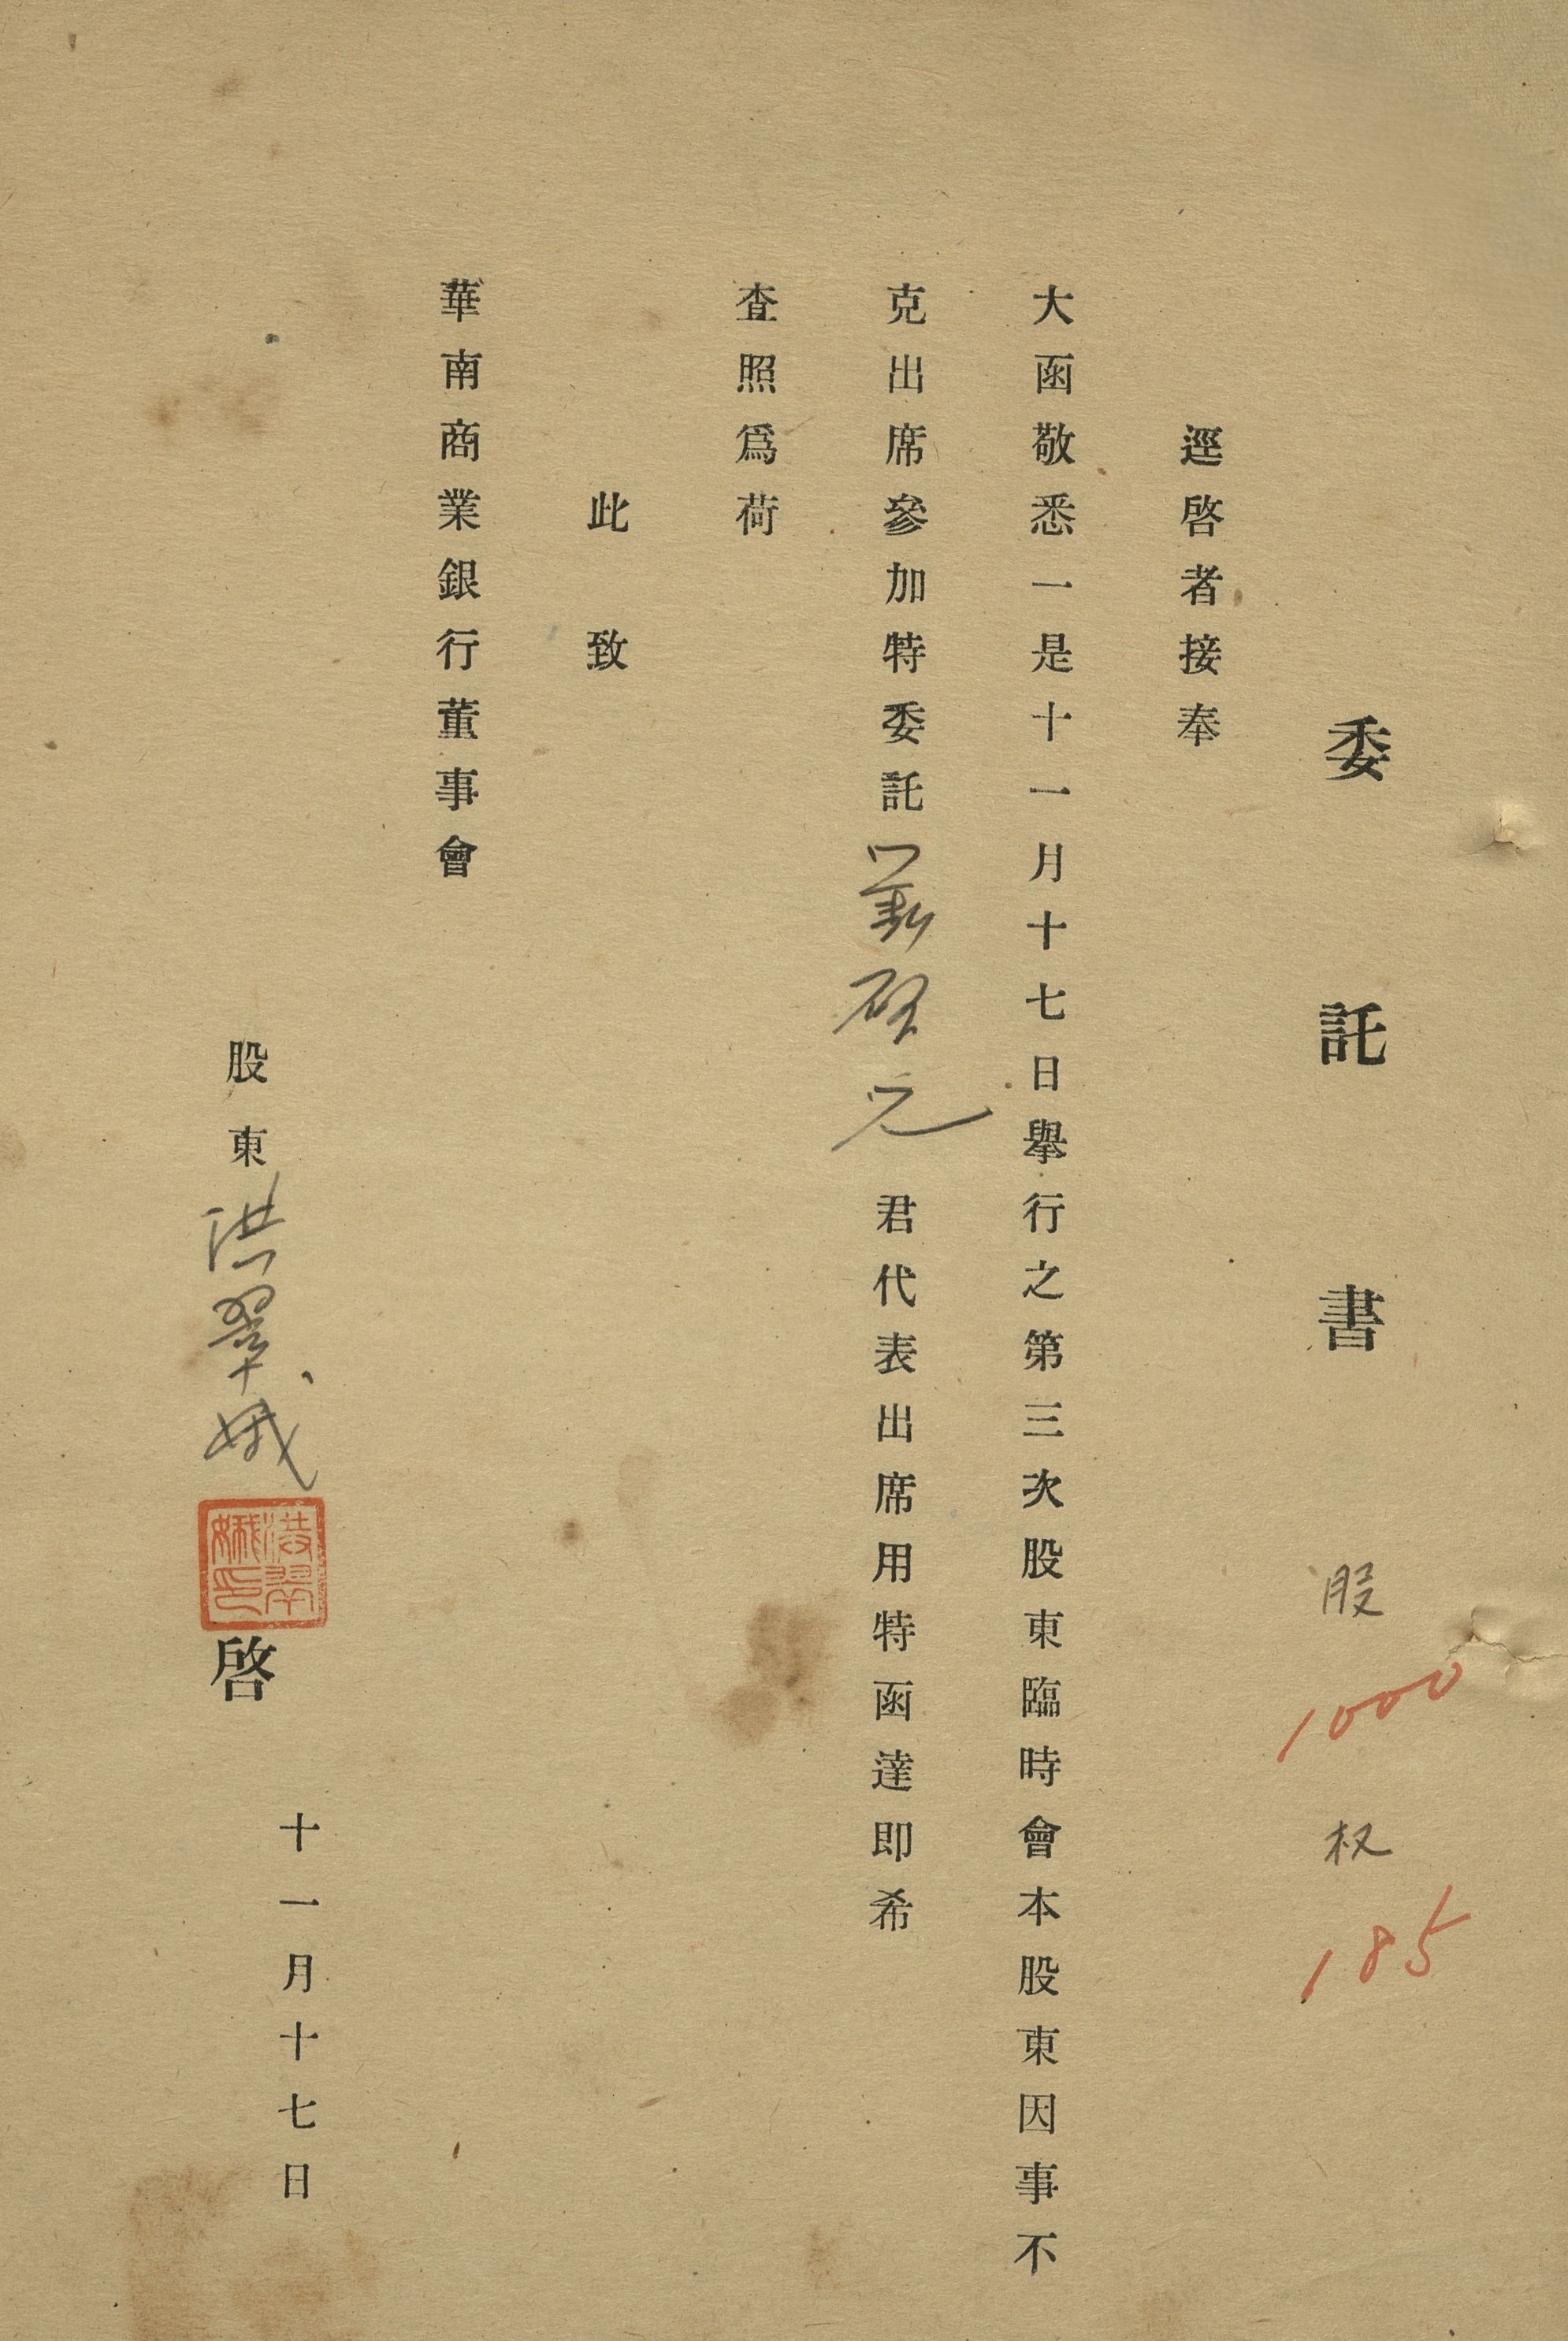 委託書
股
1000
权
185
逕啓者接奉
大函敬悉一是十一月十七日舉行之第三次股東臨時會本股東因事不
克出席參加特委託 君代表出席用特函達即希
查照爲荷
此致
華南商業銀行董事會
股東洪翠娥
洪翠娥印
啓
十一月十七日